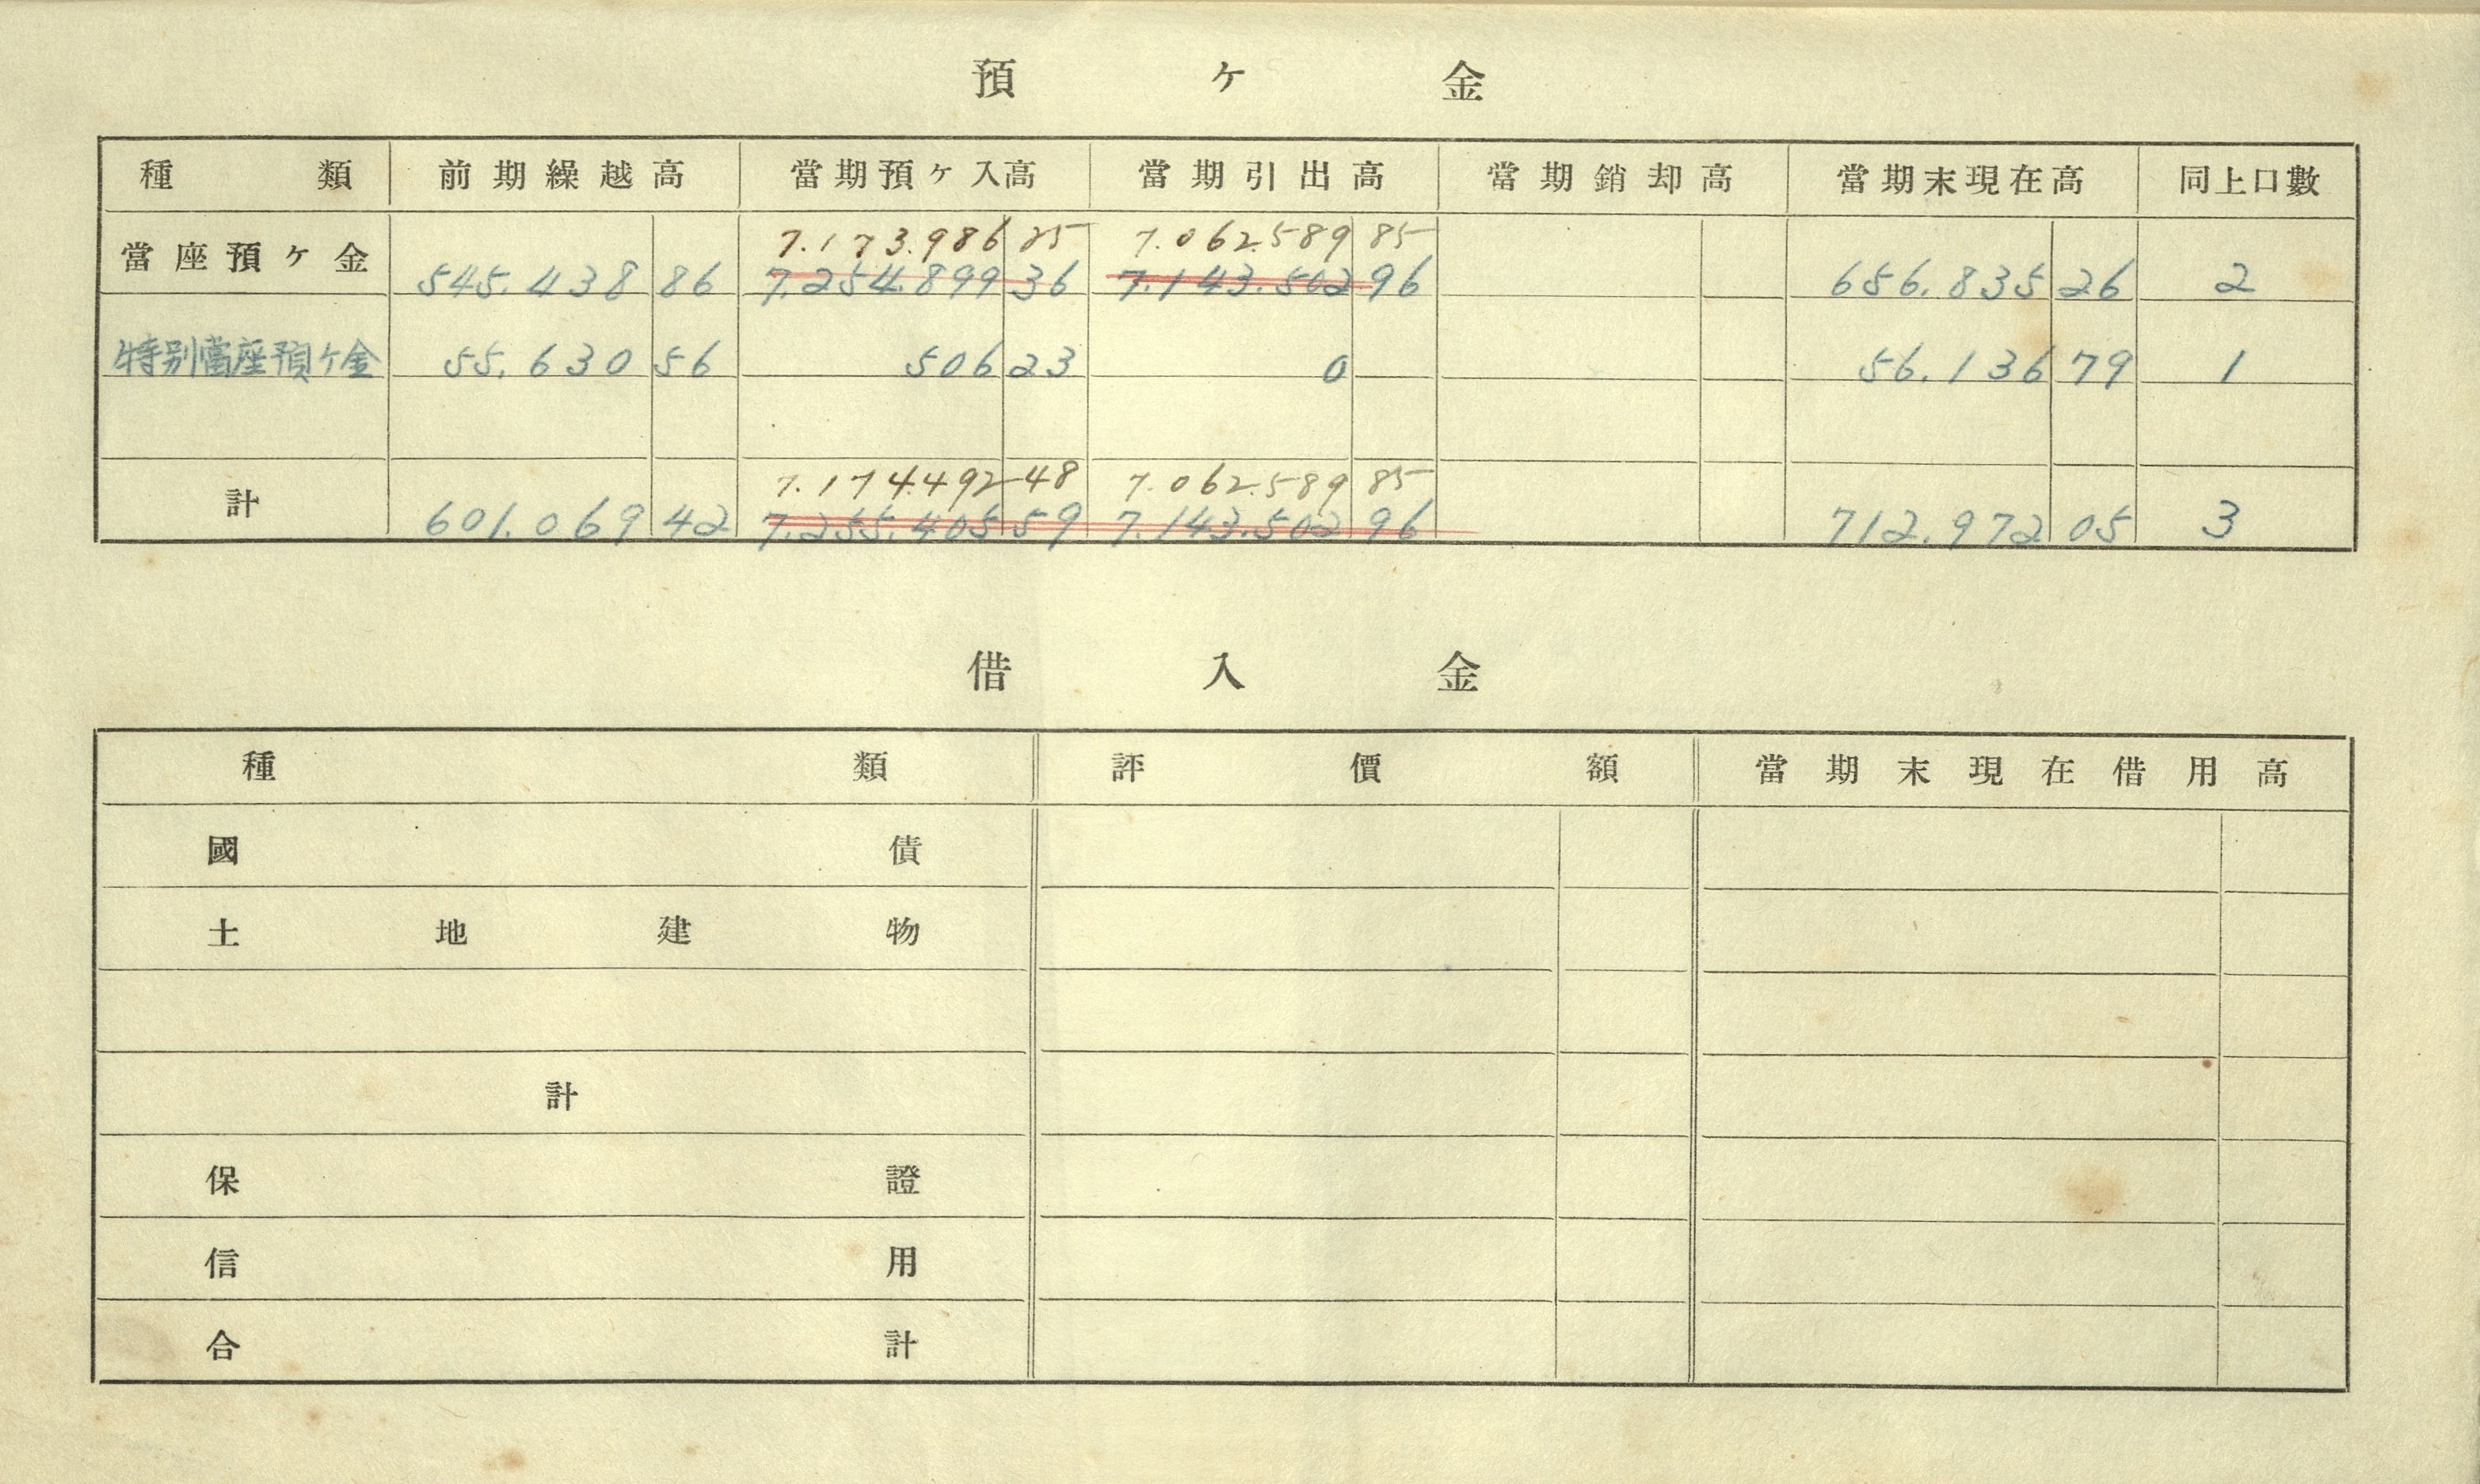 預ケ金
種類 前期繰越高 當期預ケ入高 當期引出高 當期銷却高 當期末現在高 同上口數
7.173.986 25 7.062.589 85
當座預ケ金 545.438 86 7.254.899 36 7.143.502 96 656.835 26 2
特別當座預ケ金 55.630 56 506 23 0 56.136 79 1
7.174.492 48 7.062.589 85
計 601.069 42 7.255.405 59 7.143.502 96 712.972 05 3
借入金
種類 評價額 當期末現在借用高
國債
土地建物
計
保證
信用
合計